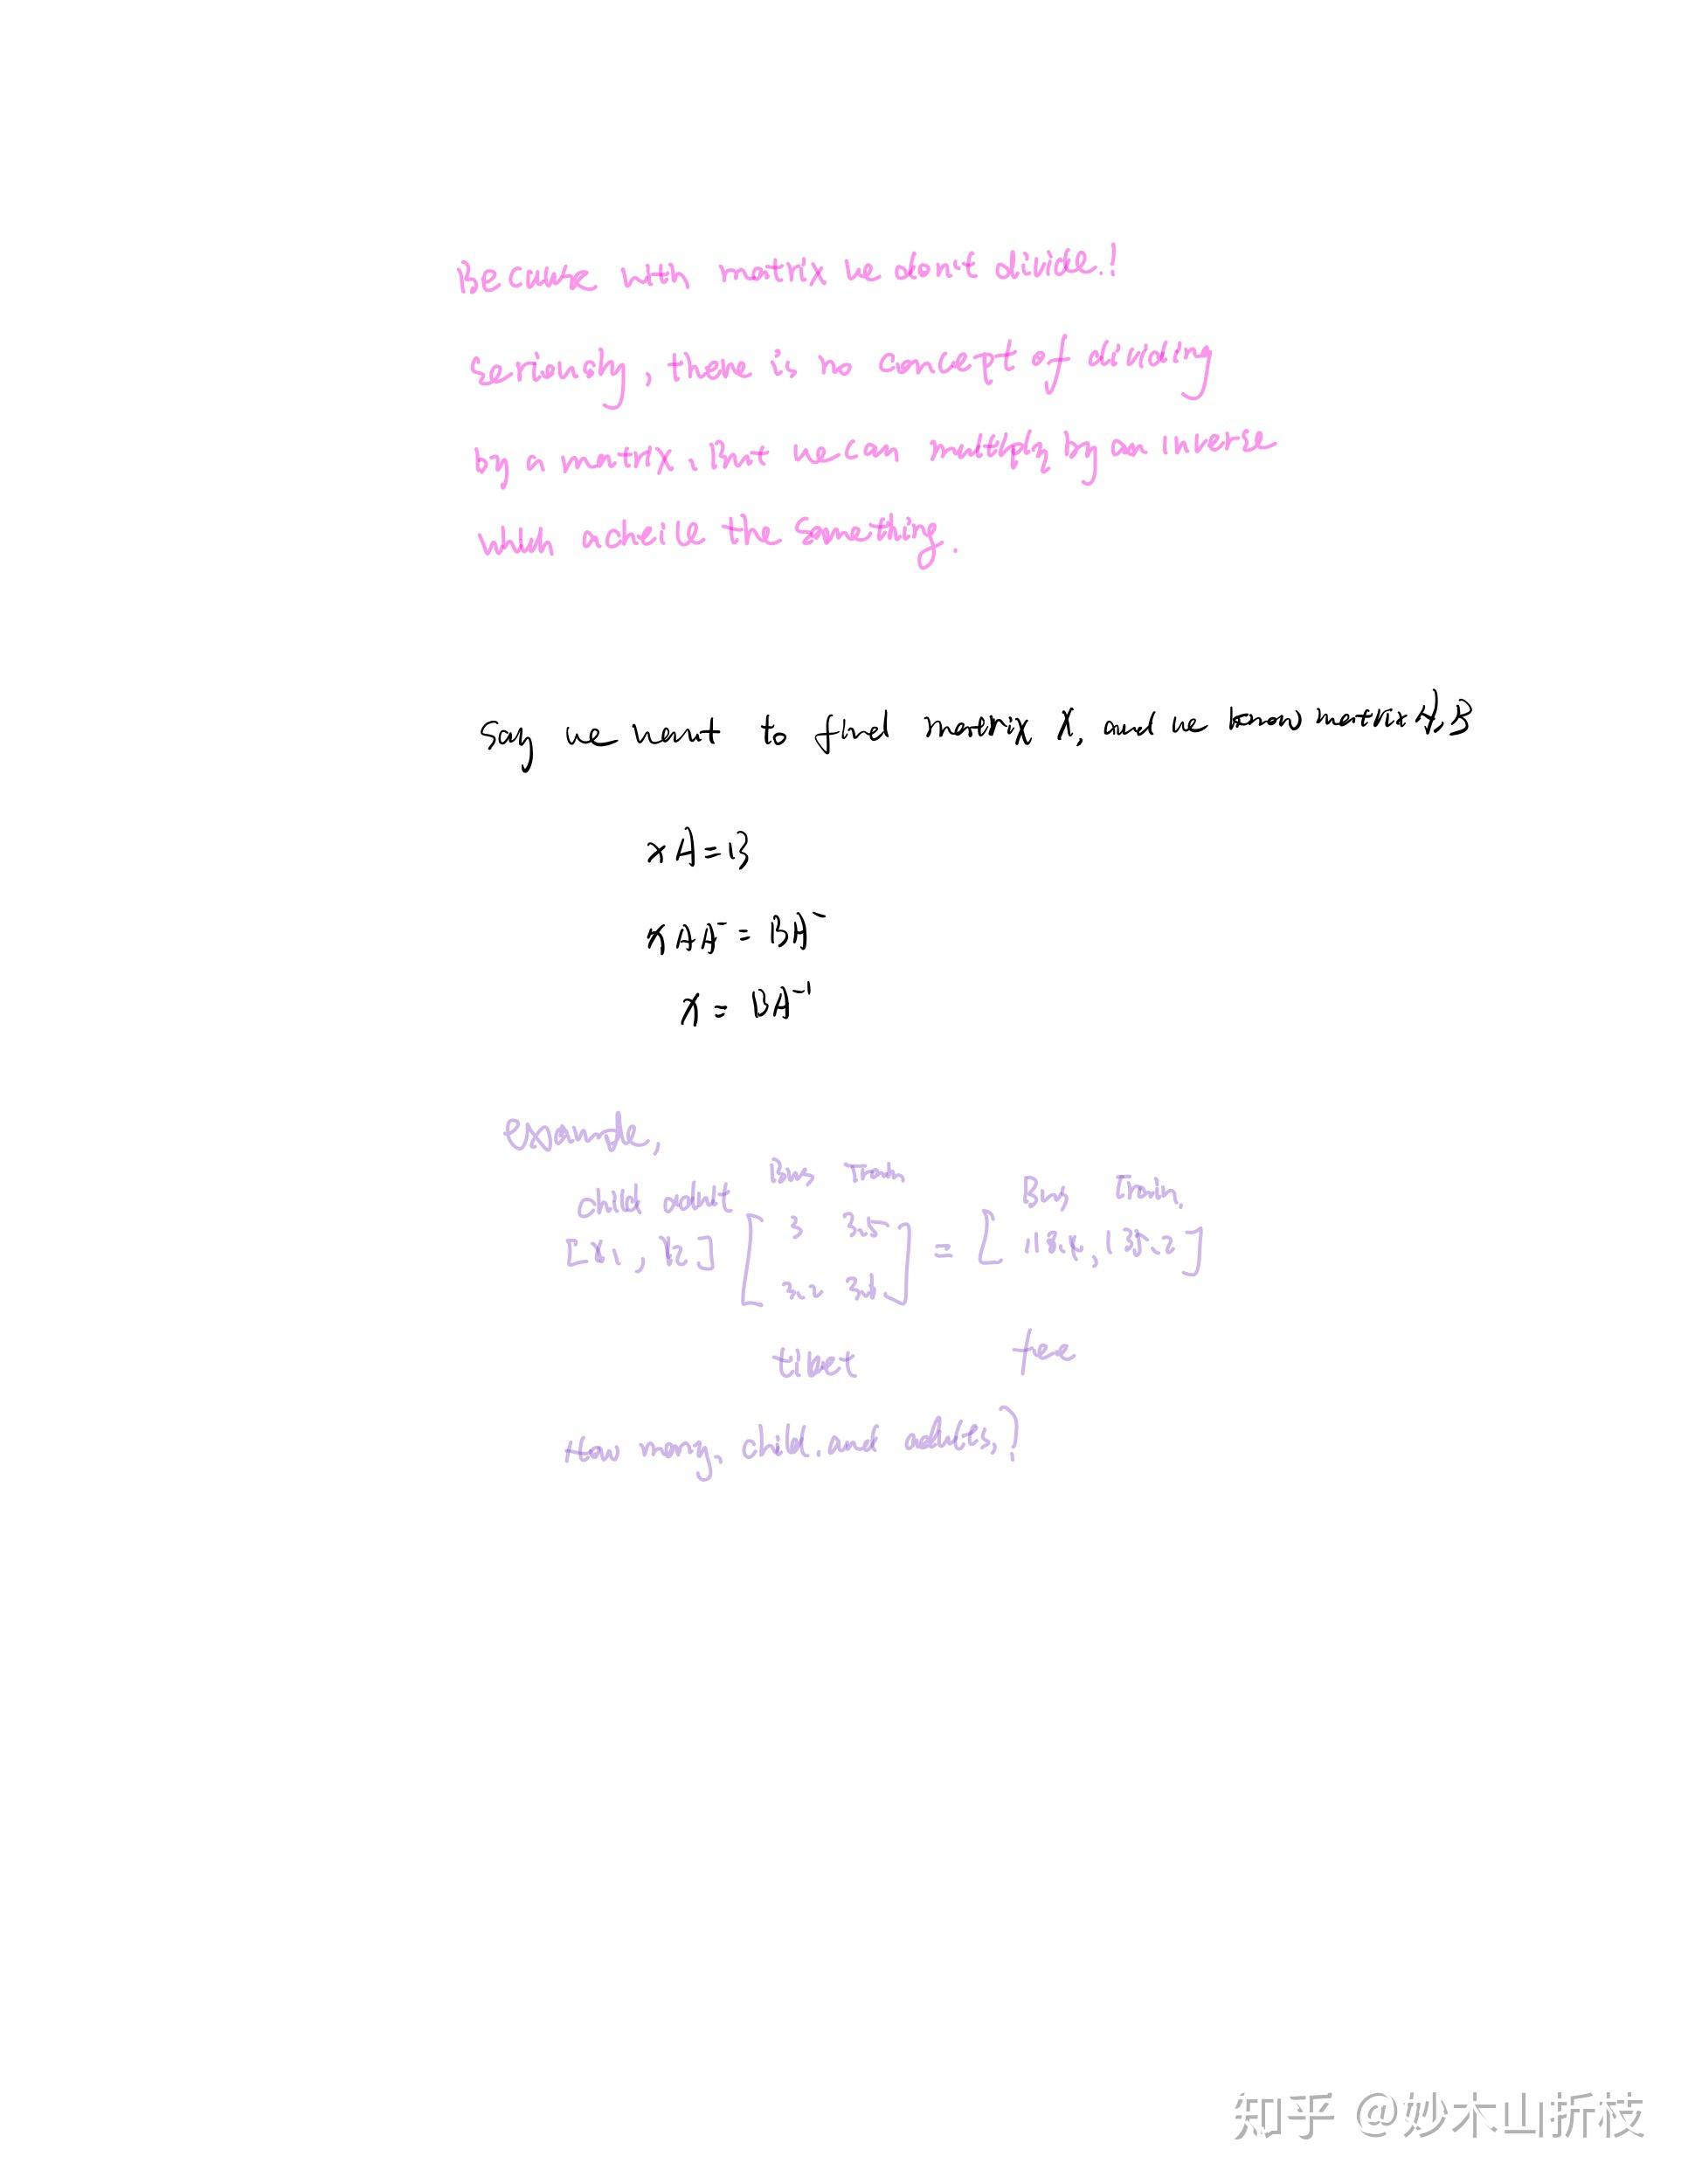 Because with matrix we don't divide.!
Seriously, there is no concept of dividing
by a matrix. But we can multiply by an inverse
which acheive the something.
Say we want to find matrix X, and we know matrix A, B
xA = B
xAA⁻ = BA⁻
x = BA⁻¹
example,
child adult Bus Train Bus Train.
[x1, x2] [ 3 3.5 ] = [ 118.4, 135.2 ]
3.2 3.6
fee
How many, child. and adults,?
知乎 @妙木山折枝